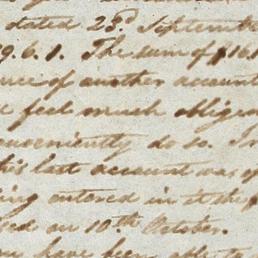 dated 23d Septembe
9.6.1. The sum of $16.1
uce of another account
feel much oblige
onveniently do so. I
his last account was of
ing entered in it the
sed on 10th October.
have been able to